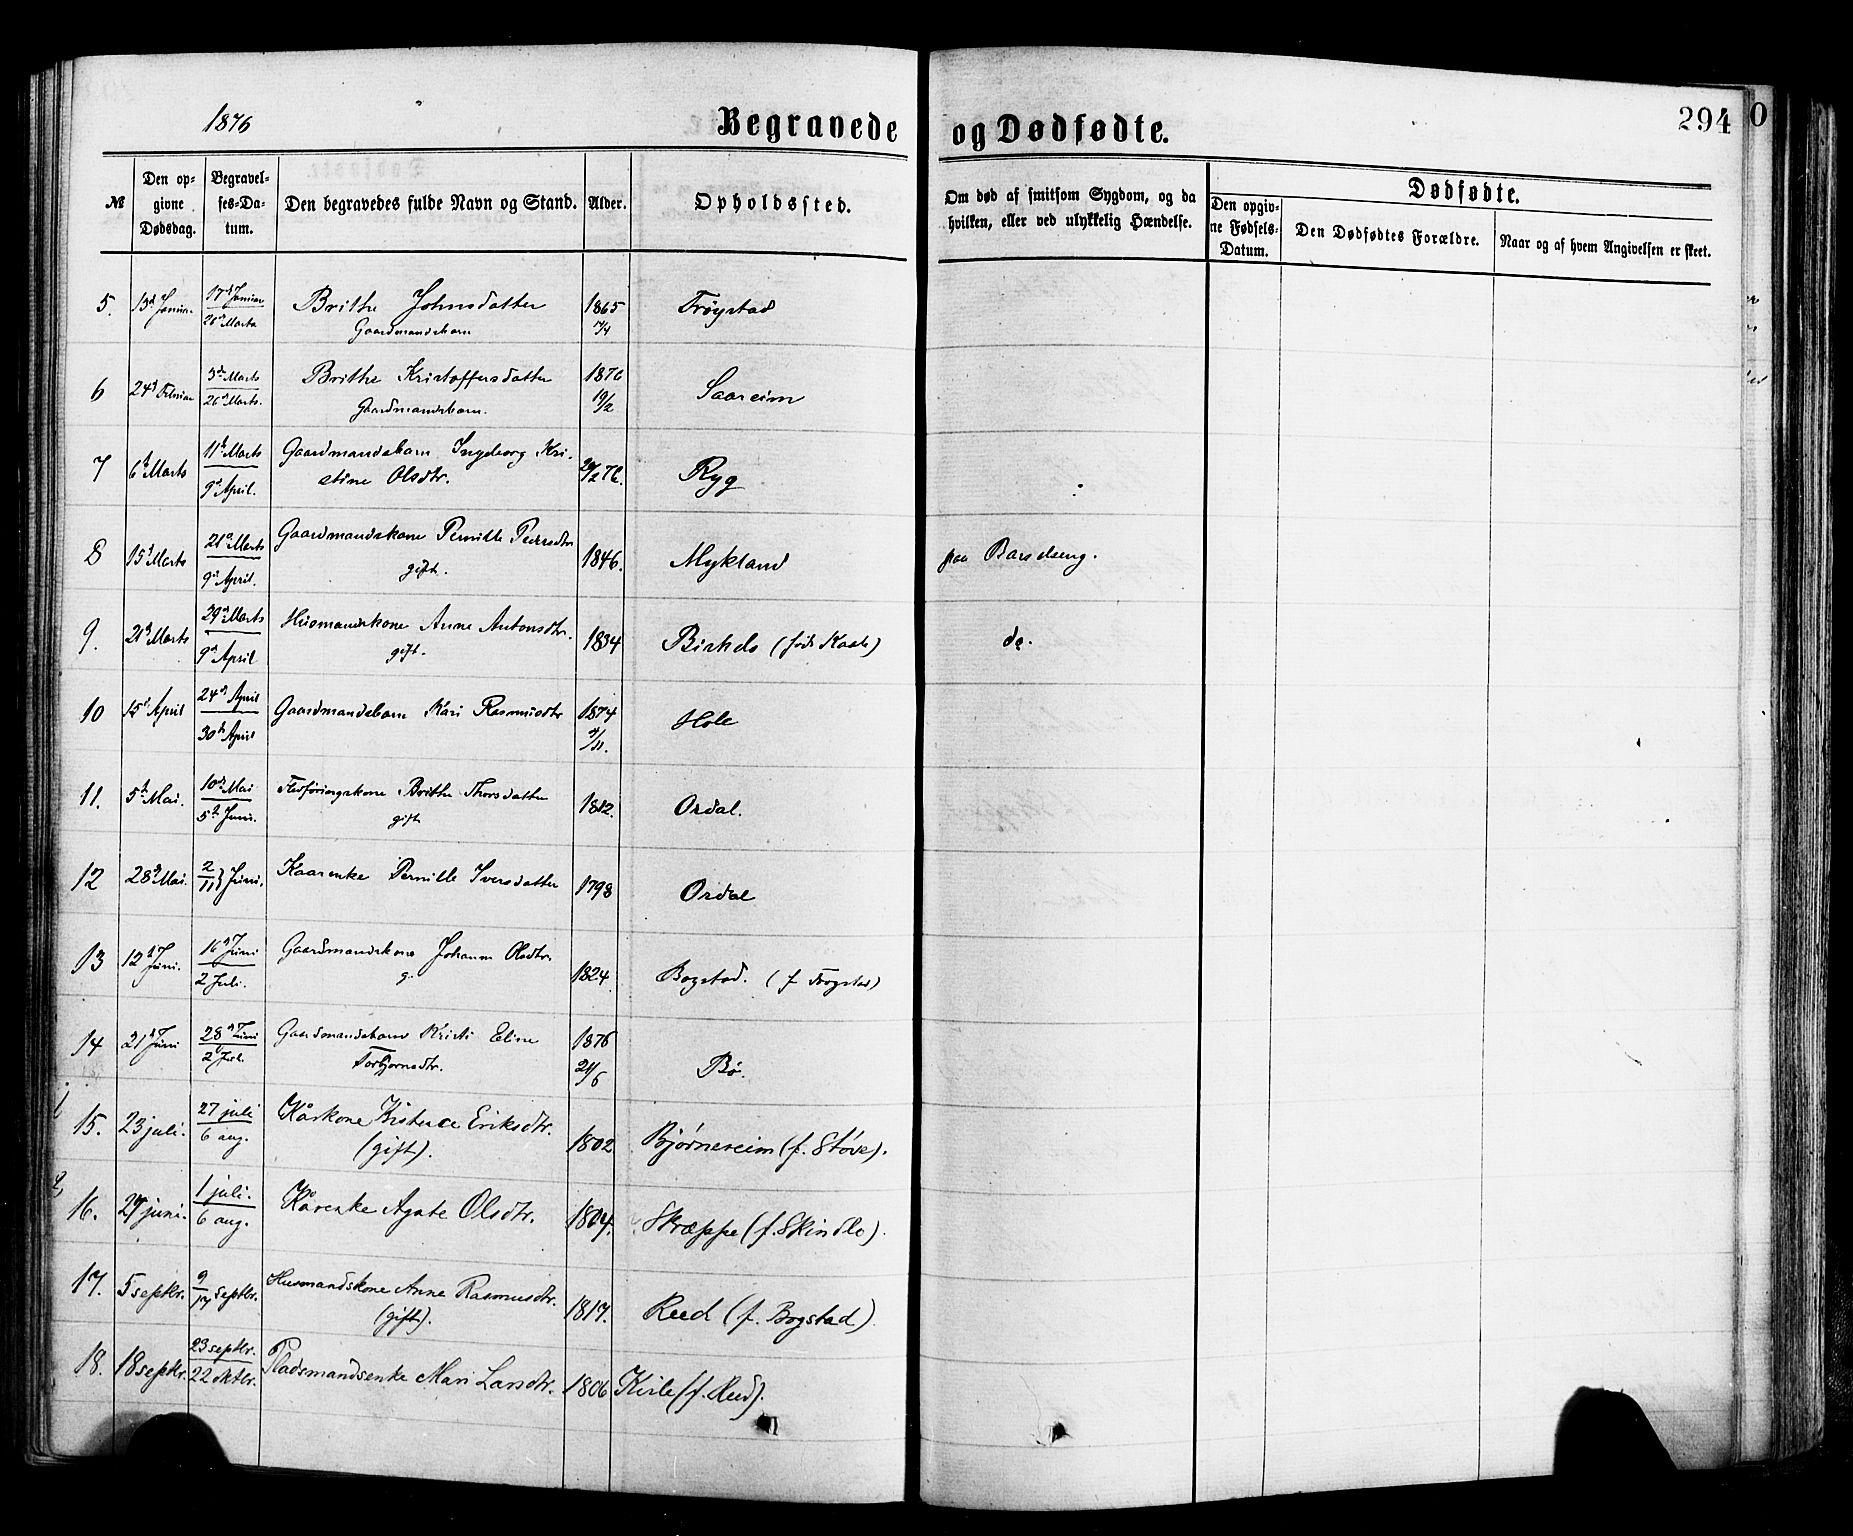 1876 Begravede og Dødfødte. 294
№ Den opgivne Dødsdag. Begravelses-Datum. Den begravedes fulde Navn og Stand. Alder. Opholdssted. Om død af smitsom Sygdom, og da hvilken, eller ved ulykkelig Hændelse. Dødfødte.
Den opgivne Fødsels-Datum. Den Dødfødtes Forældre. Naar og af hvem Angivelsen er skeet.
5. 13d Januar 17d Januar 26d Marts Brithe Johnsdatter 1865 Trøystad
Gaardmandsbarn
6 24d Februar 3d Marts 26d Marts. Brithe Kristoffersdatter 1876 19/2 Saareim
Gaardmandsbarn.
7 6d Marts 11d Marts 9d April. Gaardmandsbarn Ingeborg Kri-
stine Olsdtr. 76. Ryg
8 15d Marts 21d Marts 9d April. Gaardmandskone Pernille Pedersdtr 1846. Mykland paa Barselseng.
gift.
9. 21d Marts 29d Marts 9d April Husmandskone Anne Antonsdtr. 1834 Birkelo (født Kaale) do.
gift.
10 15d April 24d April 30d April Gaardmandsbarn Kari Rasmusdtr 1874 4/11. Hole
11. 5d Mai. 10d Mai 5d Juni. Flødføringskone Brithe Thorsdatter 1812. Ordal.
gift
12 28d Mai. 2/11 Juni. Kaarenke Pernille Iversdatter 1798 Ordal
13 12d Juni. 16d Juni 2 Juli. Gaardmandskone Johanne Olsdtr. 1824. Bogstad. (f Trøgstad)
g.
14 21d Juni 28d Juni 2d Juli. Gaardmandsbarn Kristi Eline 1876 21/6 Bø.
Torbjørnsdtr.
15. 23 juli. 27 juli 6 aug. Kårkone Kristence Eriksdtr. 1802 Bjørnereim (f. Støve).
(gift).
16. 27 juni. 1 juli. 6 aug. Kårenke Agate Olsdtr. 1804. Skræppe (f. Skindlo).
17. 5 septbr. 9/17 septbr. Husmandskone Anne Rasmusdtr. 1817. Reed (f. Bogstad).
(gift).
18. 18 septbr. 23 septbr. 22 oktbr. Pladsmandsenke Mari Larsdtr. 1806 Kvile (f. Reed).